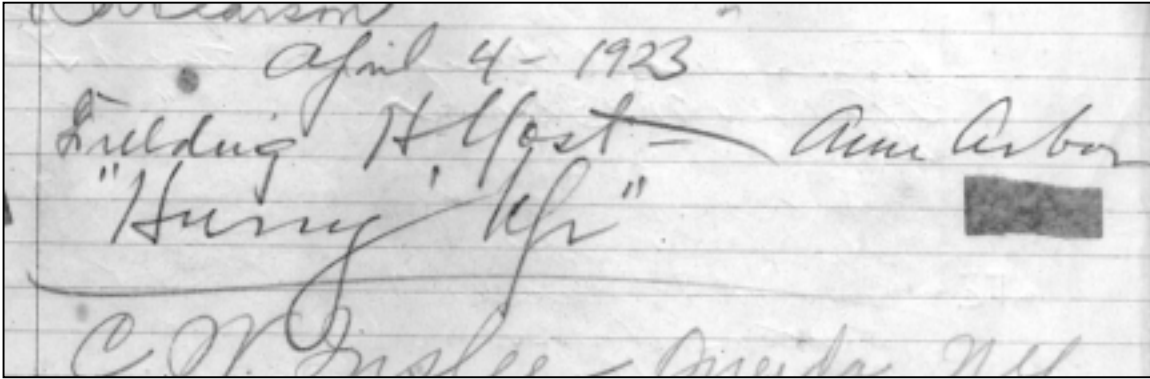 Pearson
April 4 - 1923
Fielding H Yost - Ann Arbor
"Hurry Up"
C. W. Inslee - Oneida NY